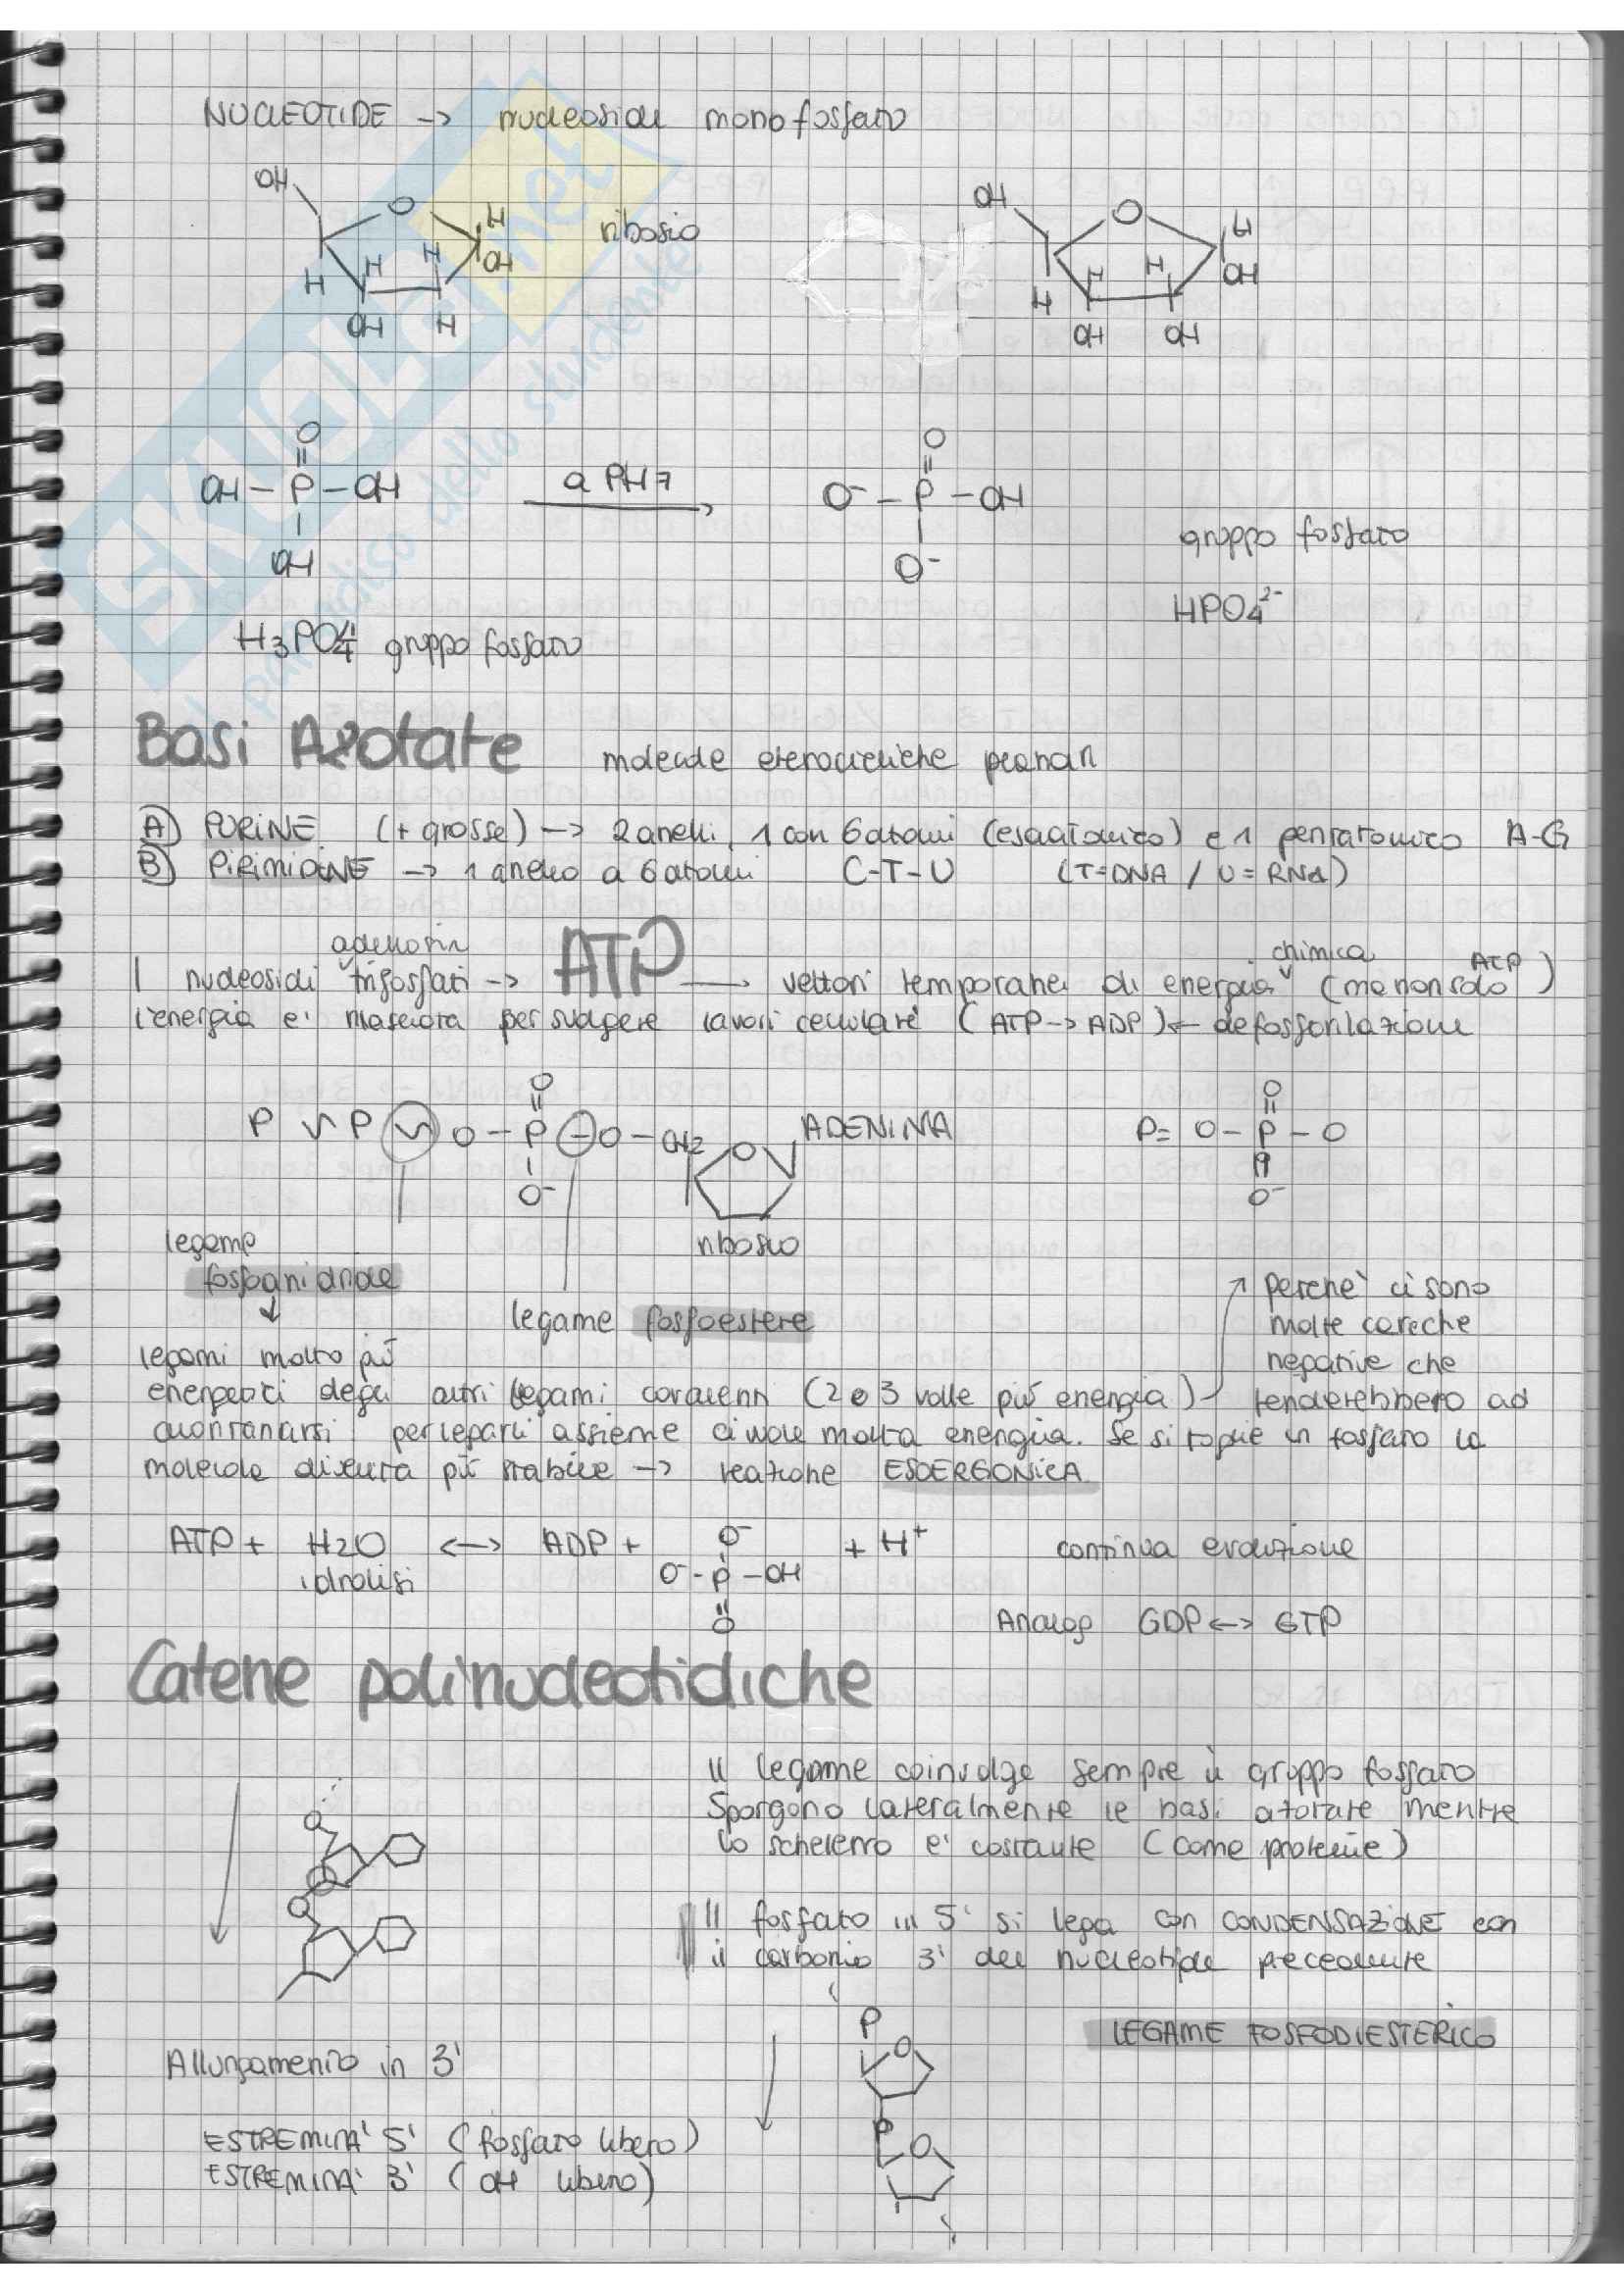 NUCLEOTIDE -> nucleoside monofosfato
OH O H H H H OH OH H
ribosio
OH O H H H H OH OH OH
O
OH-P-OH
OH
a PH7
O
O⁻-P-OH
O⁻
gruppo fosfato
HPO4²⁻
H3PO4 gruppo fosfato
Basi Azotate molecole eterocicliche planari
A) PURINE (+ grosse) -> 2 anelli, 1 con 6 atomi (esaatomico) e 1 pentatomico A-G
B) PIRIMIDINE -> 1 anello a 6 atomi C-T-U (T=DNA / U=RNA)
adenosin chimica ATP
I nucleosidi trifosfati -> ATP -> vettori temporanei di energia (ma non solo )
l'energia e' rilasciata per svolgere lavori cellulare (ATP->ADP)<- defosforilazione
O
P ~ P ~ O-P-O-CH2 O ADENINA
O⁻
ribosio
O
P= O-P-O
O⁻
legame
fosfoanidride
legame fosfoestere
perchè ci sono
molte cariche
negative che
legami molto più
energetici degli altri legami covalenti (2 o 3 volte più energia) tenderebbero ad
allontanarsi perlegarli assieme ci vuole molta energia. Se si toglie un fosfato la
molecola diventa più stabile -> reazione ESOERGONICA
ATP + H2O <-> ADP + O⁻ O⁻-P-OH O + H⁺ continua evoluzione
idrolisi
Analog GDP <-> GTP
Catene polinucleotidiche
Il legame coinvolge sempre il gruppo fosfato
Sporgono lateralmente le basi azotate mentre
lo scheletro e' costante (come proteine)
Il fosfato in 5' si lega con CONDENSAZIONE con
il carbonio 3' del nucleotide precedente
LEGAME FOSFODIESTERICO
P
O
P
O
Allungamento in 3'
ESTREMITA' 5' (fosfato libero)
ESTREMITA' 3' (OH libero)
SKUOLA.net
il paradiso dello studente